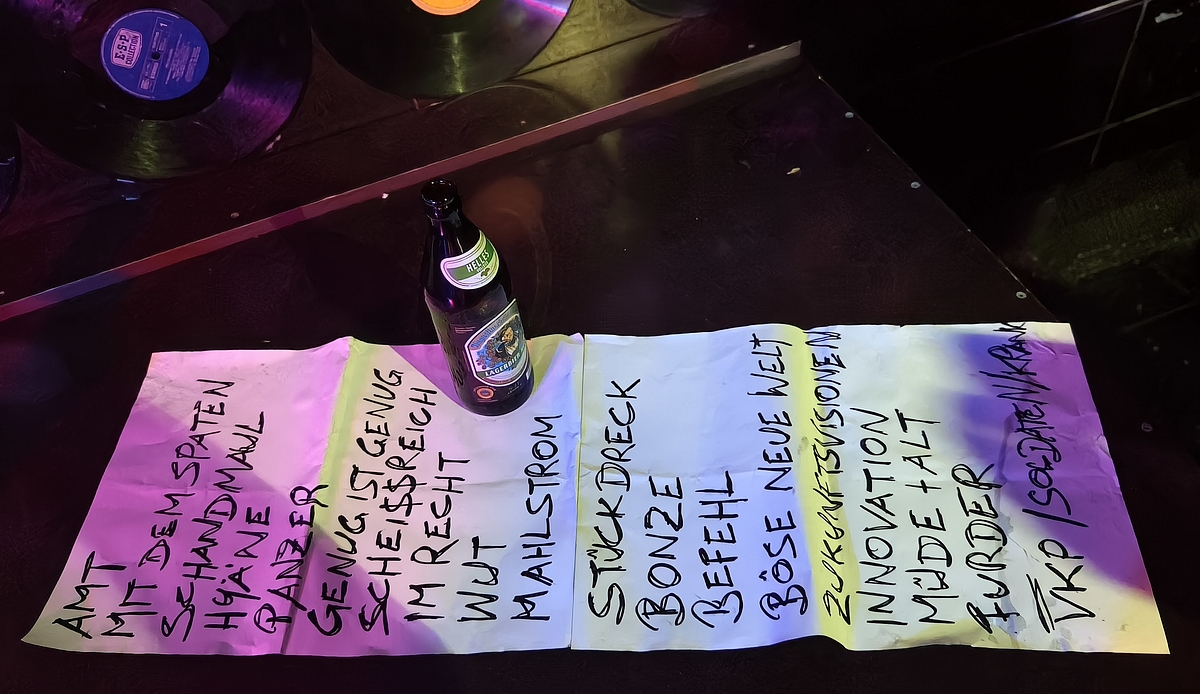 E·S·P
COLLECTION
1
HELLES
LAGERBIER
AMT
MIT DEM SPATEN
SCHANDMAUL
HYÄNE
PANZER
GENUG IST GENUG
SCHEI$$REICH
IM RECHT
WUT
MAHLSTROM
STÜCKDRECK
BONZE
BEFEHL
BÖSE NEUE WELT
ZUKUNFTSVISIONEN
INNOVATION
MÜDE + ALT
VKP / SOLDATEN / KRANK